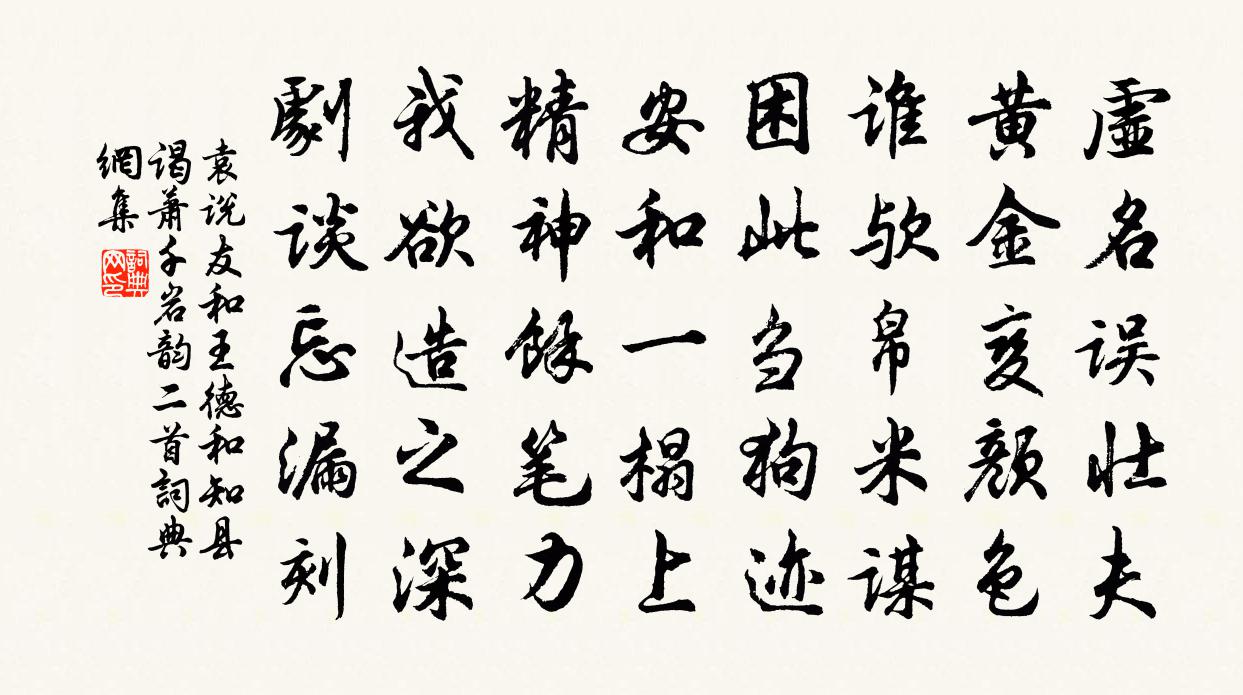 虚名误壮夫
黄金变颜色
谁欤帛米谋
困此刍狗迹
安和一榻上
精神餘笔力
我欲造之深
劇谈忘漏刻
袁说友和王德和知县
谒蕭千岩韵二首詞典
網集
詞典
网印